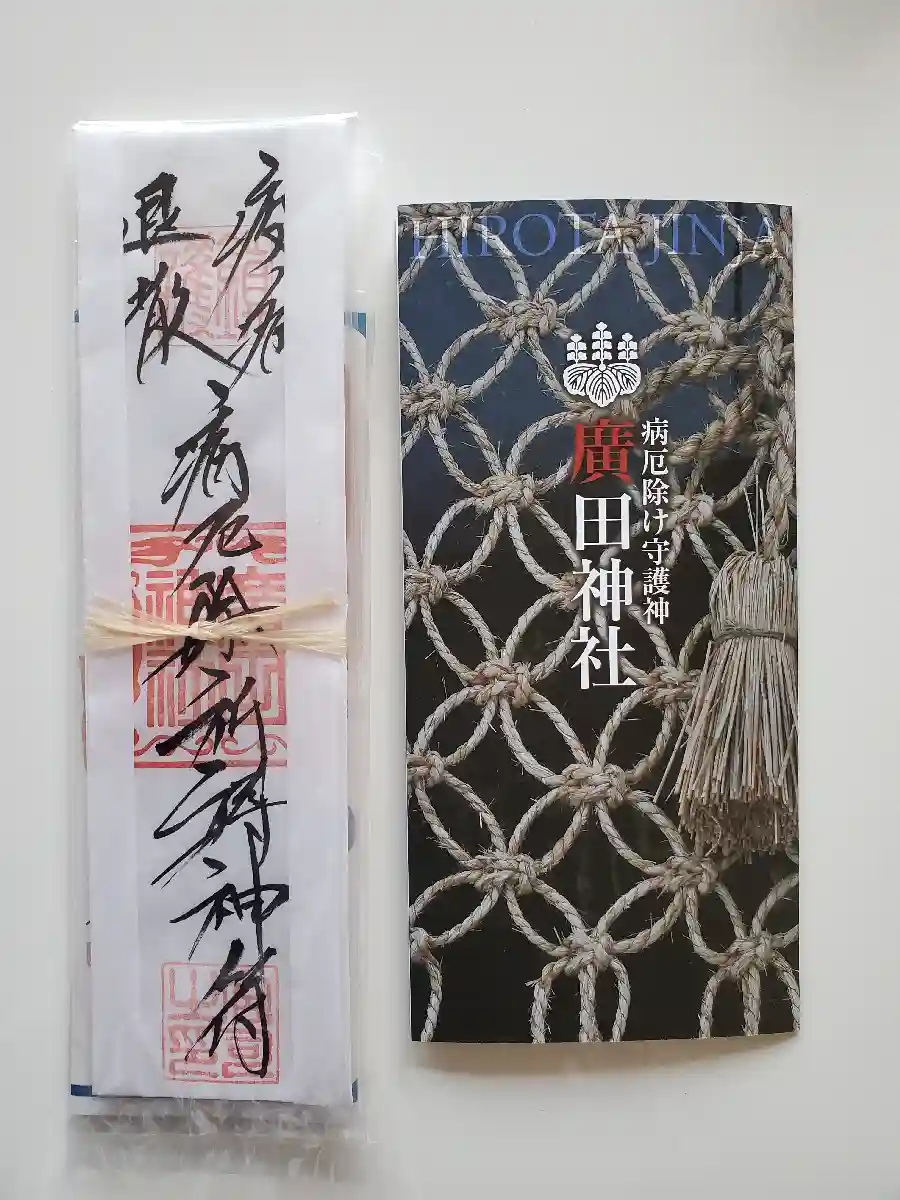 疫病
退散
病厄除祈祷神符
HIROTA JINJA
病厄除け守護神
廣田神社